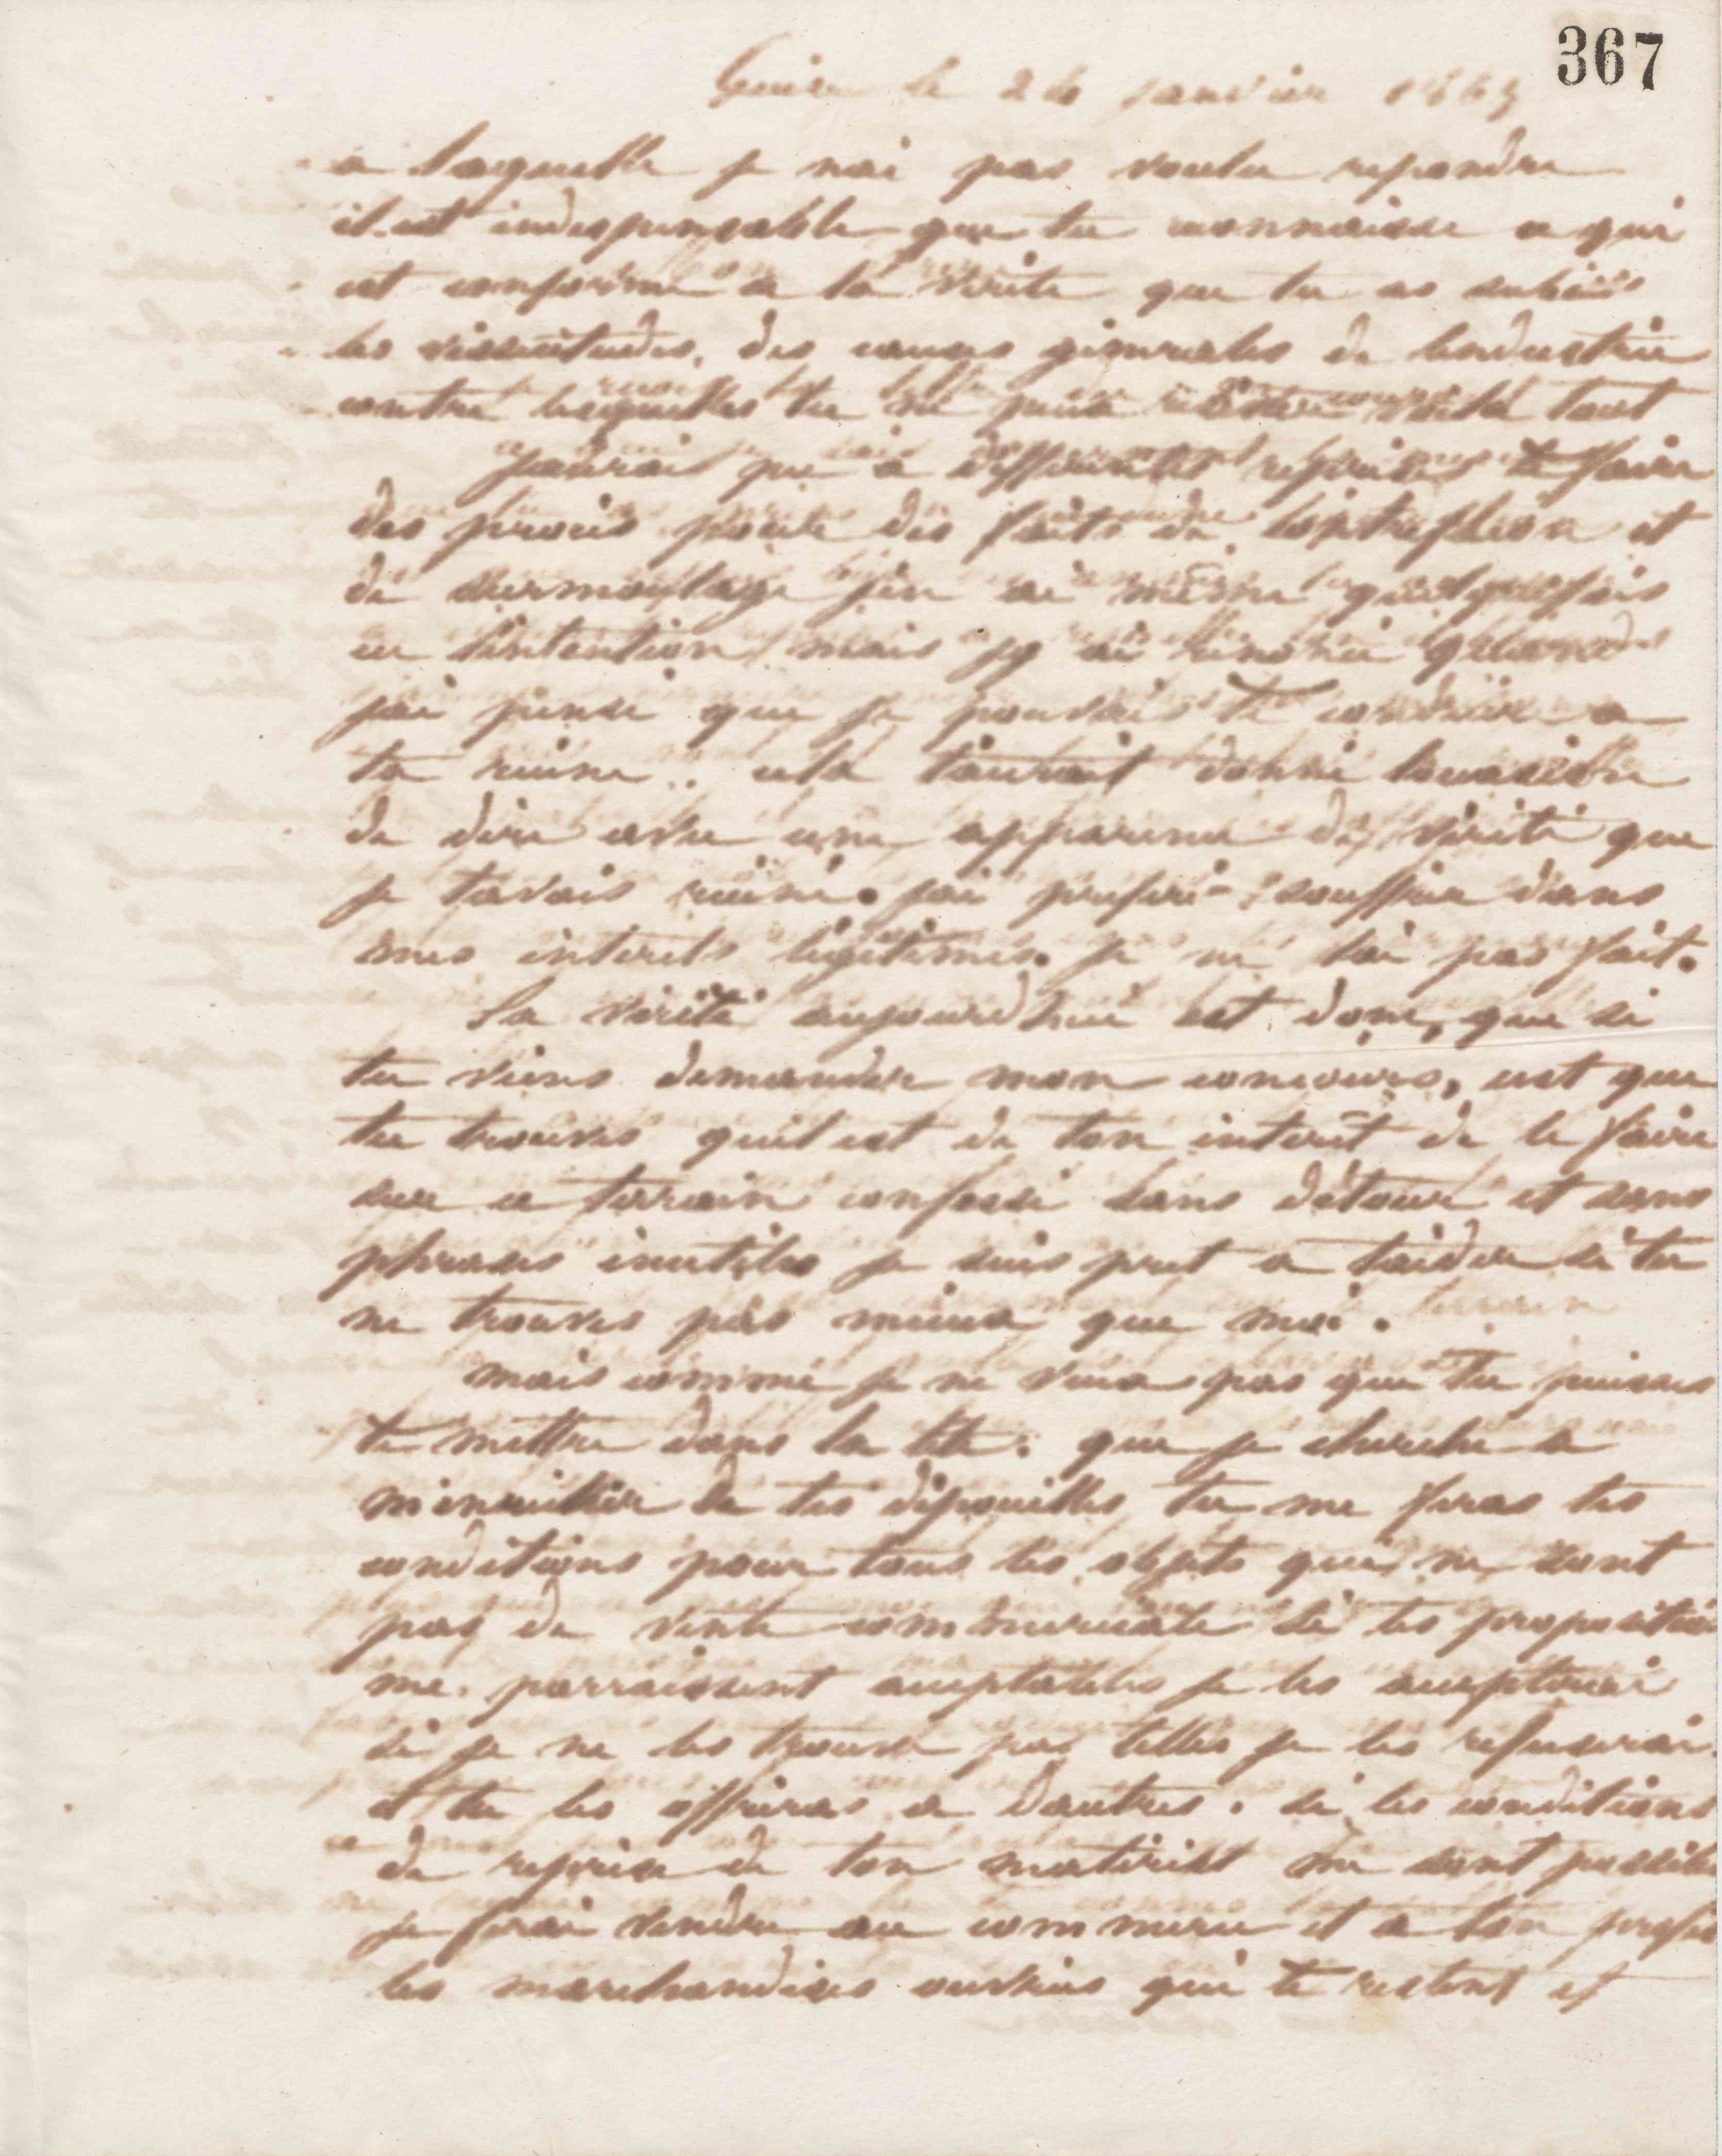 367
Guise le 26 janvier 1863
a laquelle je nai pas voulu repondre
il est indespensable que tu reconnaisse ce qui
est conforme a la verite que tu as subi
les vissicitudes, des causes generales de lindustrie
contre lesquelles tu ne peux voila tout
jaurais pu a differentes reprises te faire
des proces pour des faits de contrefacon et
de surmoulage jen ai même quelquefois
eu lintention mais jy ai renoncé quand
jai pensé que je pouvais te conduire a
ta ruine. cela taurait donné loccasion
de dire avec une apparence de vérité que
je tavais ruiné. jai preferé souffrir dans
mes interets légitimes. je ne lai pas fait.
La vérité aujourdhui est donc, que si
tu viens demander mon concours, cest que
tu trouves quil est de ton interêt de le faire
sur ce terrain confessé sans détour et sans
phrases inutiles je suis pret a taider si tu
ne trouves pas mieux que moi.
mais comme je ne veux pas que tu puisses
te mettre dans la tete. que je cherche a
menrichir de tes dépouilles tu me feras tes
conditions pour tous les objets qui ne sont
pas de vente commerciale si tes proposition
me parraissent acceptables je les accepterai
si je ne les trouve pas telles je les refuserai.
et tu les offriras a dautres. si les conditions
de reprise de ton matériel me sont possibles
je ferai vendre au commerce et a ton profit
les marchandises ouvrées qui te restent et